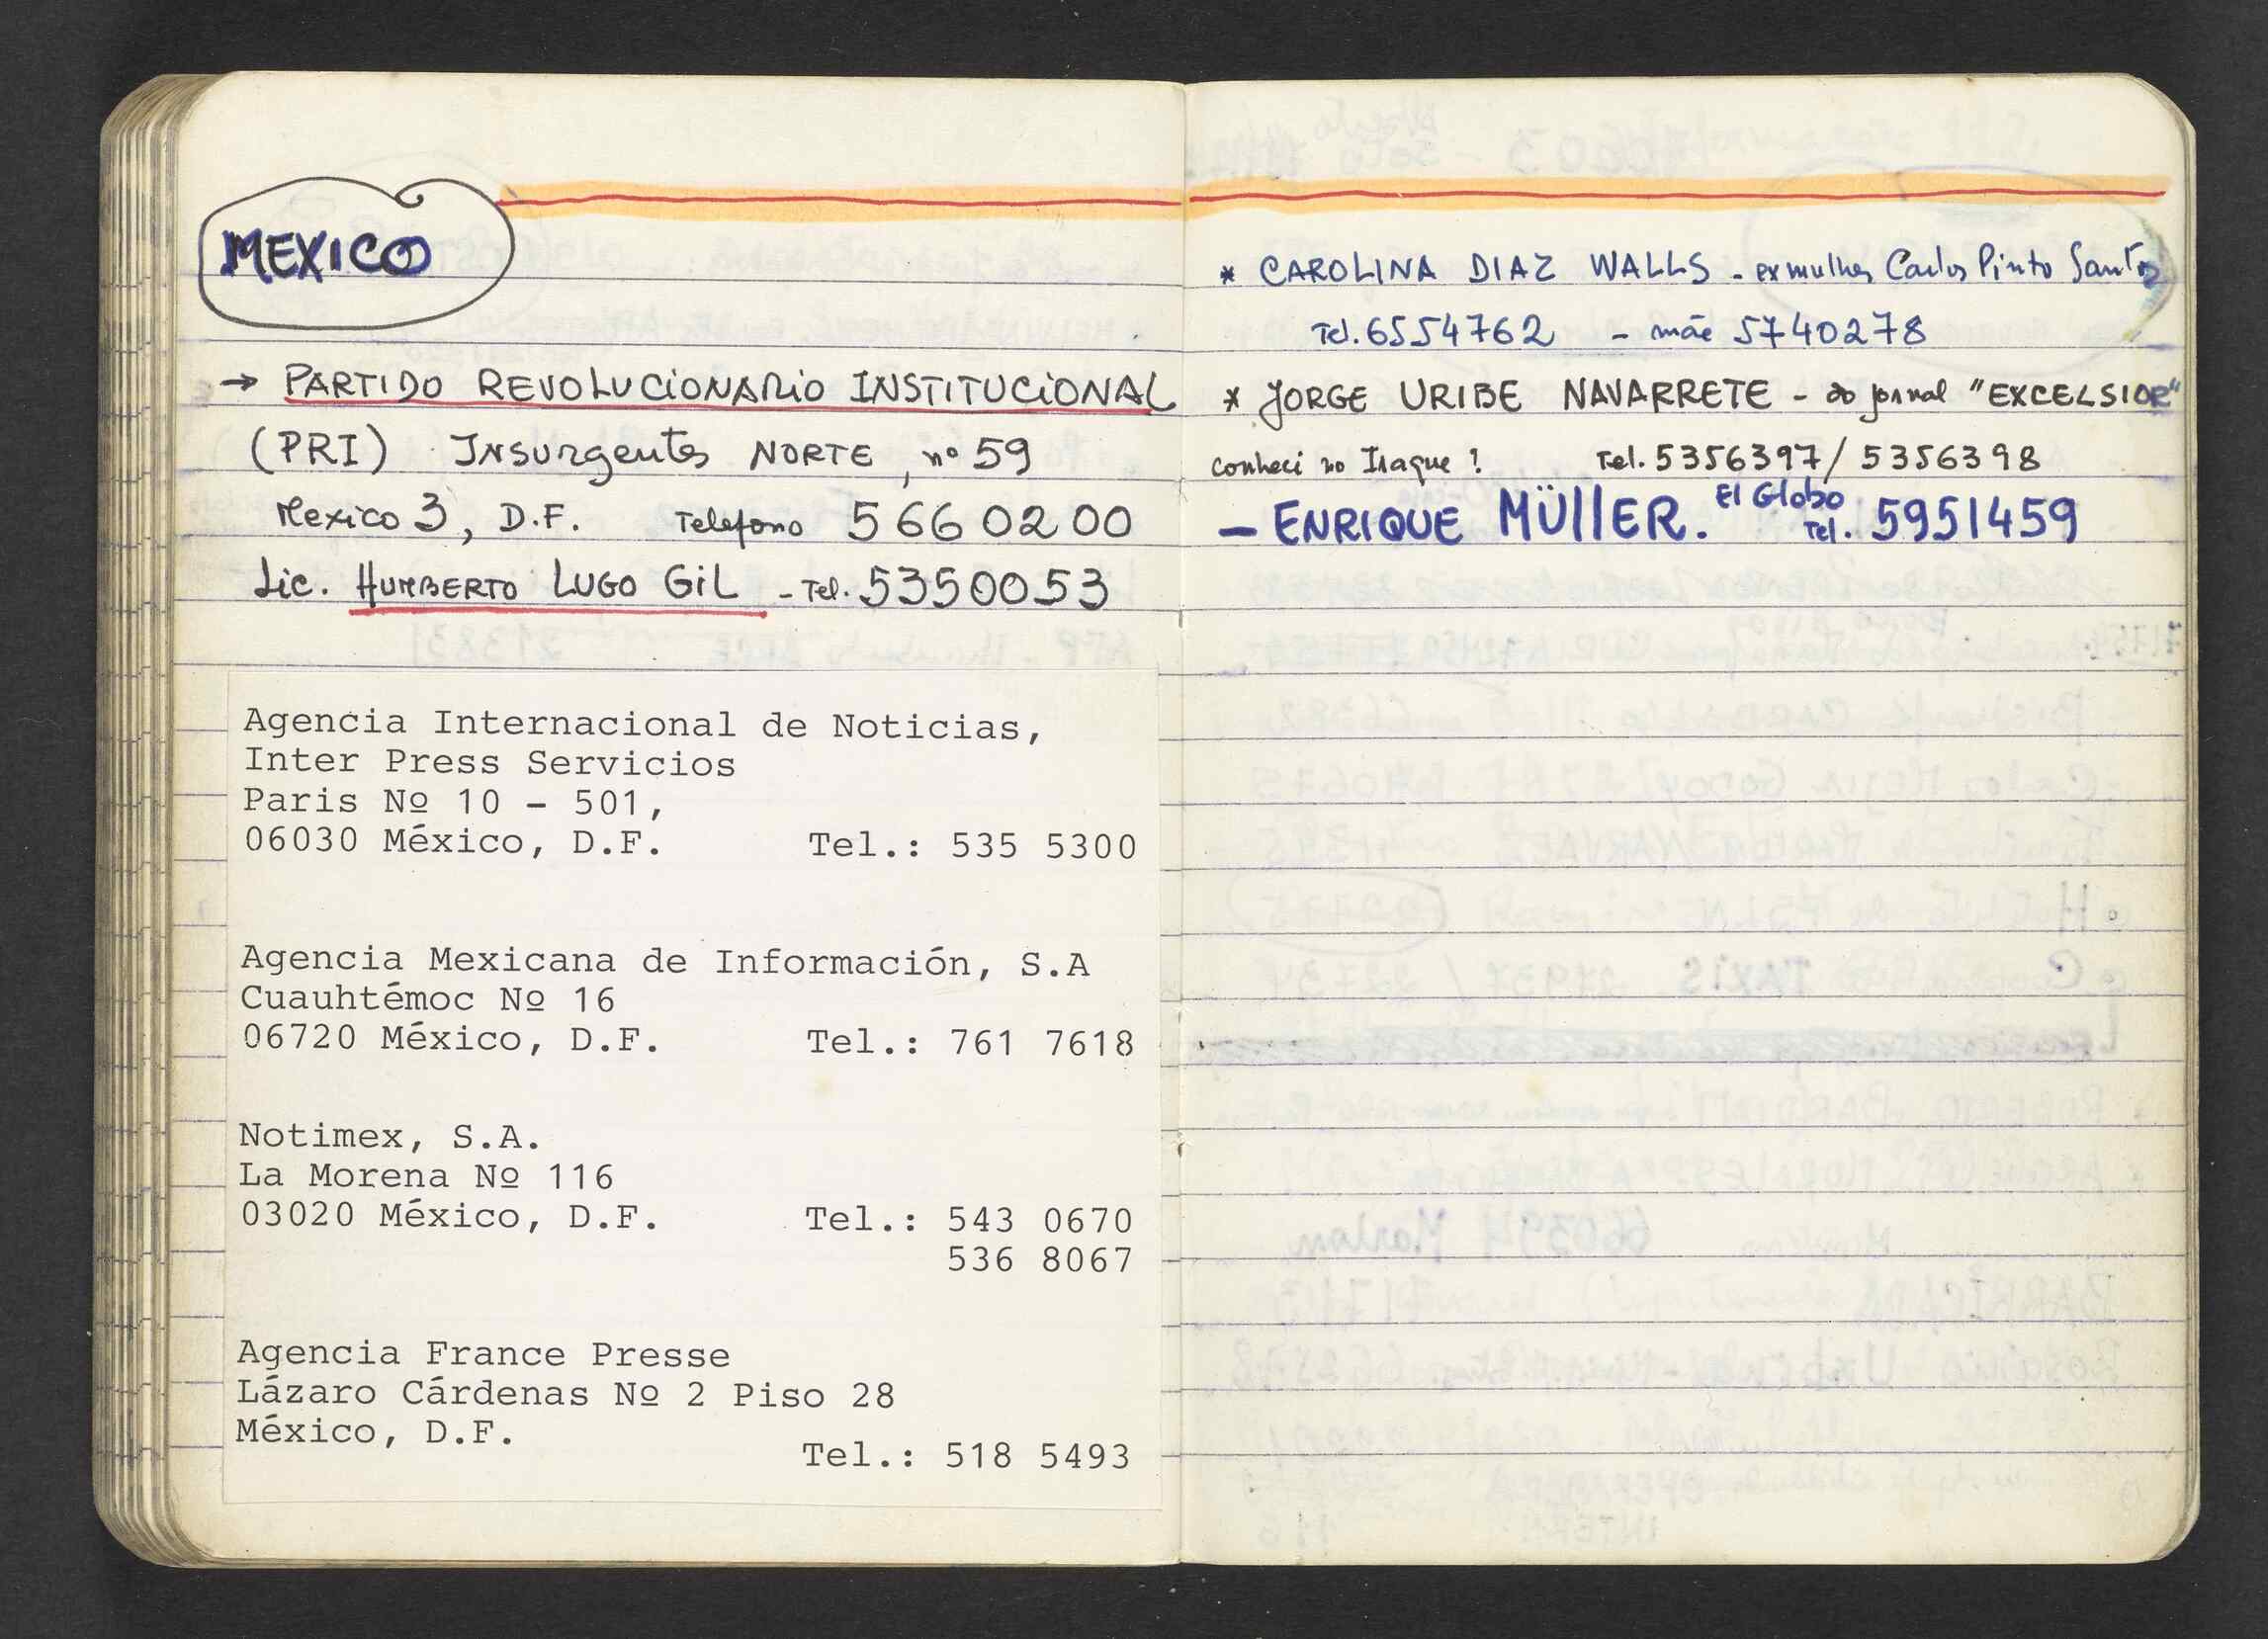 MEXICO
→ PARTIDO REVOLUCIONARIO INSTITUCIONAL
(PRI) Insurgentes NORTE, nº 59
Mexico 3, D.F. Telefono 5660200
Lic. HUMBERTO LUGO GIL - Tel. 5350053
Agencia Internacional de Noticias,
Inter Press Servicios
Paris Nº 10 - 501,
06030 México, D.F. Tel.: 535 5300
Agencia Mexicana de Información, S.A
Cuauhtémoc Nº 16
06720 México, D.F. Tel.: 761 7618
Notimex, S.A.
La Morena Nº 116
03020 México, D.F. Tel.: 543 0670
536 8067
Agencia France Presse
Lázaro Cárdenas Nº 2 Piso 28
México, D.F.
Tel.: 518 5493
* CAROLINA DIAZ WALLS - ex mulher Carlos Pinto Santos
Tel. 6554762 - mãe 5740278
* JORGE URIBE NAVARRETE - do jornal "EXCELSIOR"
conheci no Iraque! Tel. 5356397/5356398
- ENRIQUE MÜllER. El Globo Tel. 5951459